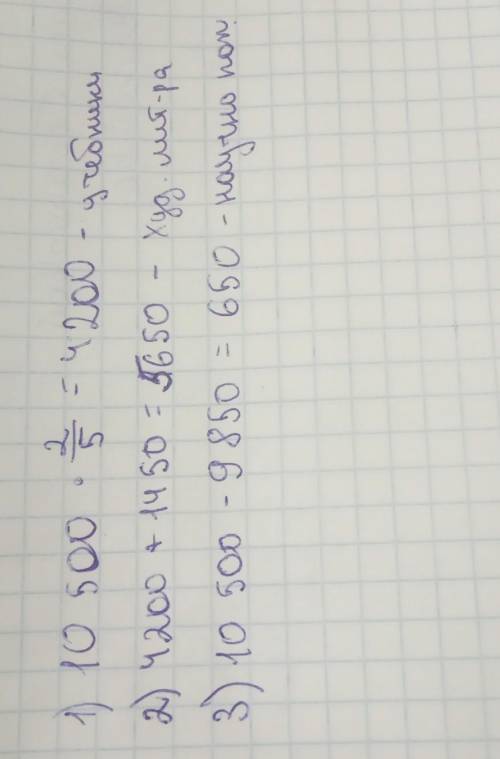 1) 10 500 · 2/5 = 4200 - учебники
2) 4200 + 1450 = 5650 - худ. лит-ра
3) 10 500 - 9 850 = 650 - научно поп.